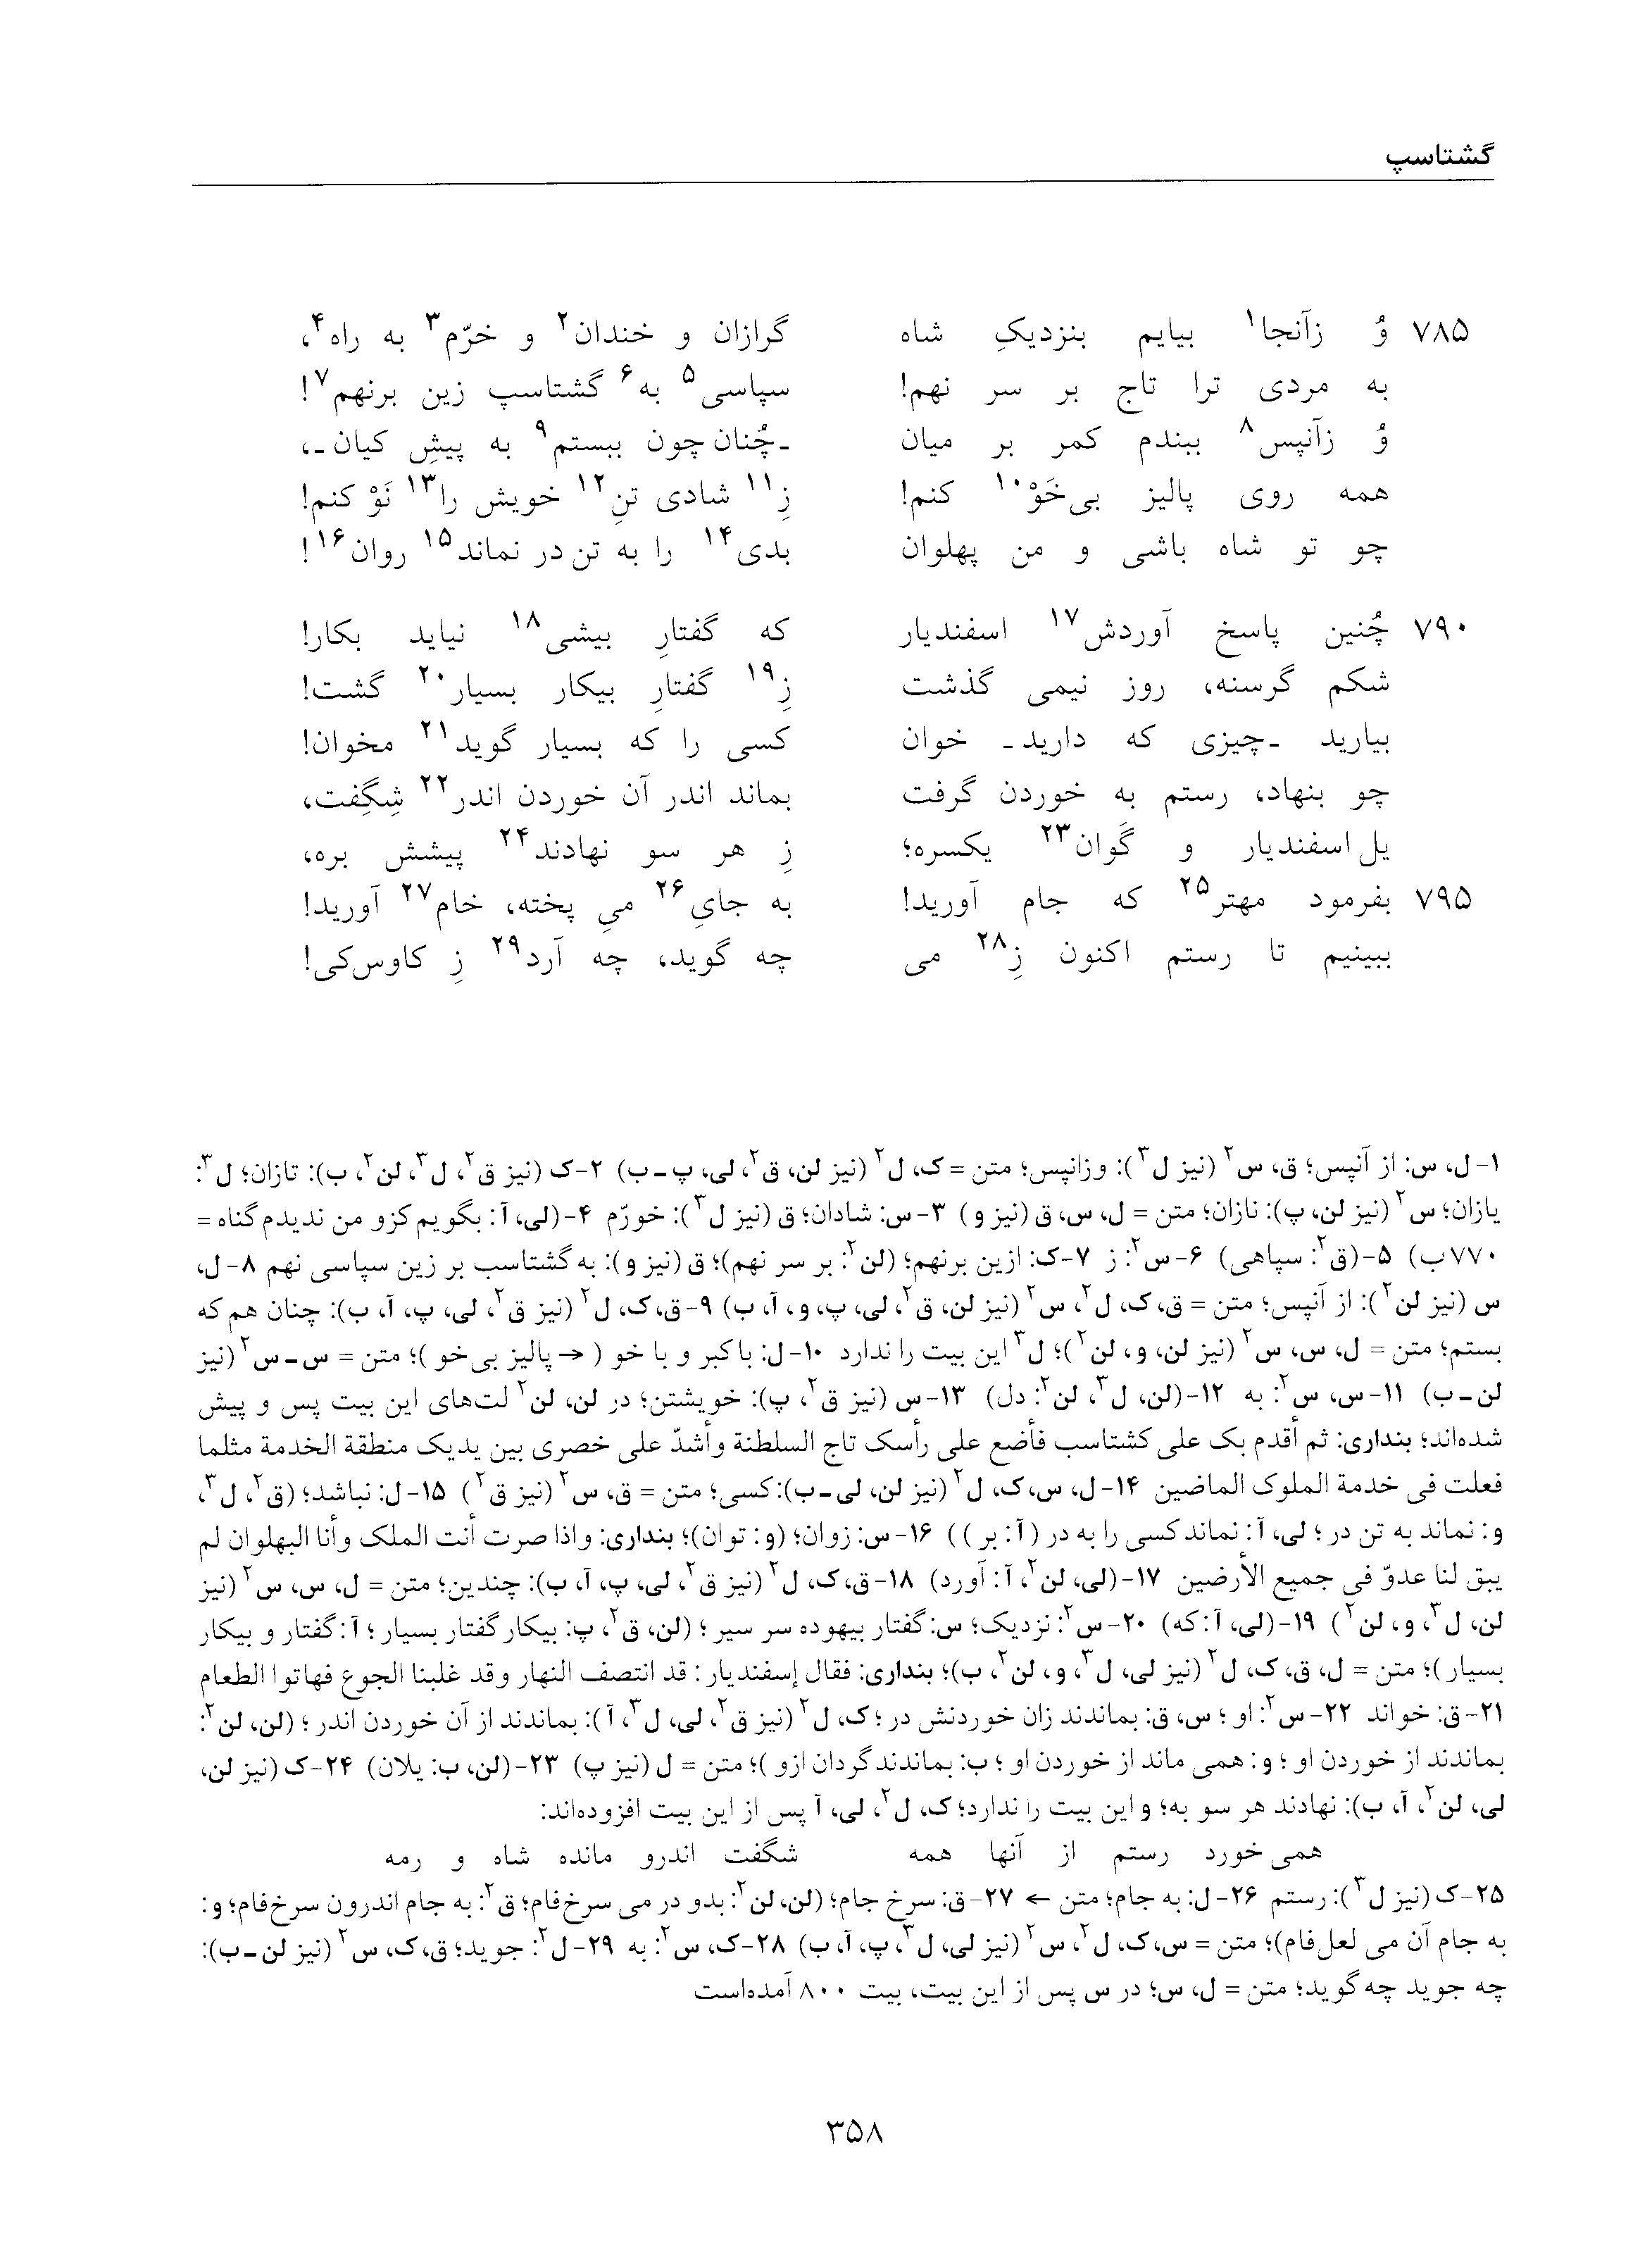 گشتاسپ
۷۸۵ وُ زآنجا۱ بیایم بنزدیکِ شاه گرازان و خندان۲ و خرّم۳ به راه۴،
به مردی ترا تاج بر سر نهم! سپاسی۵ به۶ گشتاسپ زین برنهم۷!
وُ زآنپس۸ ببندم کمر بر میان ـ چُنان چون ببستم۹ به پیشِ کیان ـ،
همه روی پالیز بی‌خَوْ۱۰ کنم! زِ۱۱ شادی تنِ۱۲ خویش را۱۳ نَوْ کنم!
چو تو شاه باشی و من پهلوان بدی۱۴ را به تن در نماند۱۵ روان۱۶!
۷۹۰ چُنین پاسخ آوردش۱۷ اسفندیار که گفتارِ بیشی۱۸ نیاید بکار!
شکم گرسنه، روز نیمی گذشت زِ۱۹ گفتارِ بیکار بسیار۲۰ گشت!
بیارید ـ چیزی که دارید ـ خوان کسی را که بسیار گوید۲۱ مخوان!
چو بنهاد، رستم به خوردن گرفت بماند اندر آن خوردن اندر۲۲ شِگِفت،
یل اسفندیار و گَوان۲۳ یکسره؛ زِ هر سو نهادند۲۴ پیشش بره،
۷۹۵ بفرمود مهتر۲۵ که جام آورید! به جایِ۲۶ میِ پخته، خام۲۷ آورید!
ببینیم تا رستم اکنون زِ۲۸ می چه گوید، چه آرد۲۹ زِ کاوس‌کی!
۱- ل، س: از آنپس؛ ق، س۲ (نیز ل۳): وزانپس؛ متن = ک، ل۲ (نیز لن، ق۲، لی، پ ـ ب) ۲- ک (نیز ق۲، ل۳، لن۲، ب): تازان؛ ل۳:
یازان؛ س۲ (نیز لن، پ): نازان؛ متن = ل، س، ق (نیز و) ۳- س: شادان؛ ق (نیز ل۳): خورّم ۴- (لی، آ: بگویم کزو من ندیدم گناه =
۷۷۰ ب) ۵- (ق۲: سپاهی) ۶- س۲: ز ۷- ک: ازین برنهم؛ (لن۲: بر سر نهم)؛ ق (نیز و): به گشتاسب بر زین سپاسی نهم ۸- ل،
س (نیز لن۲): از آنپس؛ متن = ق، ک، ل۲، س۲ (نیز لن، ق۲، لی، پ، و، آ، ب) ۹- ق، ک، ل۲ (نیز ق۲، لی، پ، آ، ب): چنان هم که
بستم؛ متن = ل، س، س۲ (نیز لن، و، لن۲)؛ ل۳ این بیت را ندارد ۱۰- ل: با کبر و با خو ( → پالیز بی‌خو )؛ متن = س ـ س۲ (نیز
لن ـ ب) ۱۱- س، س۲: به ۱۲- (لن، ل۳، لن۲: دل) ۱۳- س (نیز ق۲، پ): خویشتن؛ در لن، لن۲ لت‌های این بیت پس و پیش
شده‌اند؛ بنداری: ثم أقدم بک علی کشتاسب فأضع علی رأسک تاج السلطنة وأشدّ علی خصری بین یدیک منطقة الخدمة مثلما
فعلت فی خدمة الملوک الماضین ۱۴- ل، س، ک، ل۲ (نیز لن، لی ـ ب): کسی؛ متن = ق، س۲ (نیز ق۲) ۱۵- ل: نباشد؛ (ق۲، ل۳،
و: نماند به تن در؛ لی، آ: نماند کسی را به در (آ: بر)) ۱۶- س: زوان؛ (و: توان)؛ بنداری: واذا صرت أنت الملک وأنا البهلوان لم
یبق لنا عدوّ فی جمیع الأرضین ۱۷- (لی، لن۲، آ: آورد) ۱۸- ق، ک، ل۲ (نیز ق۲، لی، پ، آ، ب): چندین؛ متن = ل، س، س۲ (نیز
لن، ل۳، و، لن۲) ۱۹- (لی، آ: که) ۲۰- س۲: نزدیک؛ س: گفتار بیهوده سر سیر؛ (لن، ق۲، پ: بیکار گفتار بسیار؛ آ: گفتار و بیکار
بسیار)؛ متن = ل، ق، ک، ل۲ (نیز لی، ل۳، و، لن۲، ب)؛ بنداری: فقال إسفندیار: قد انتصف النهار وقد غلبنا الجوع فهاتوا الطعام
۲۱- ق: خواند ۲۲- س۲: او؛ س، ق: بماندند زان خوردنش در؛ ک، ل۲ (نیز ق۲، لی، ل۳، آ): بماندند از آن خوردن اندر؛ (لن، لن۲:
بماندند از خوردن او؛ و: همی ماند از خوردن او؛ ب: بماندند گردان ازو)؛ متن = ل (نیز پ) ۲۳- (لن، ب: یلان) ۲۴- ک (نیز لن،
لی، لن۲، آ، ب): نهادند هر سو به؛ و این بیت را ندارد؛ ک، ل۲، لی، آ پس از این بیت افزوده‌اند:
همی خورد رستم از آنها همه شگفت اندرو مانده شاه و رمه
۲۵- ک (نیز ل۳): رستم ۲۶- ل: به جام؛ متن ← ۲۷- ق: سرخ جام؛ (لن، لن۲: بدو در می سرخ‌فام؛ ق۲: به جام اندرون سرخ‌فام؛ و:
به جام آن می لعل‌فام)؛ متن = س، ک، ل۲، س۲ (نیز لی، ل۳، پ، آ، ب) ۲۸- ک، س۲: به ۲۹- ل۲: جوید؛ ق، ک، س۲ (نیز لن ـ ب):
چه جوید چه گوید؛ متن = ل، س؛ در س پس از این بیت، بیت ۸۰۰ آمده‌است
۳۵۸